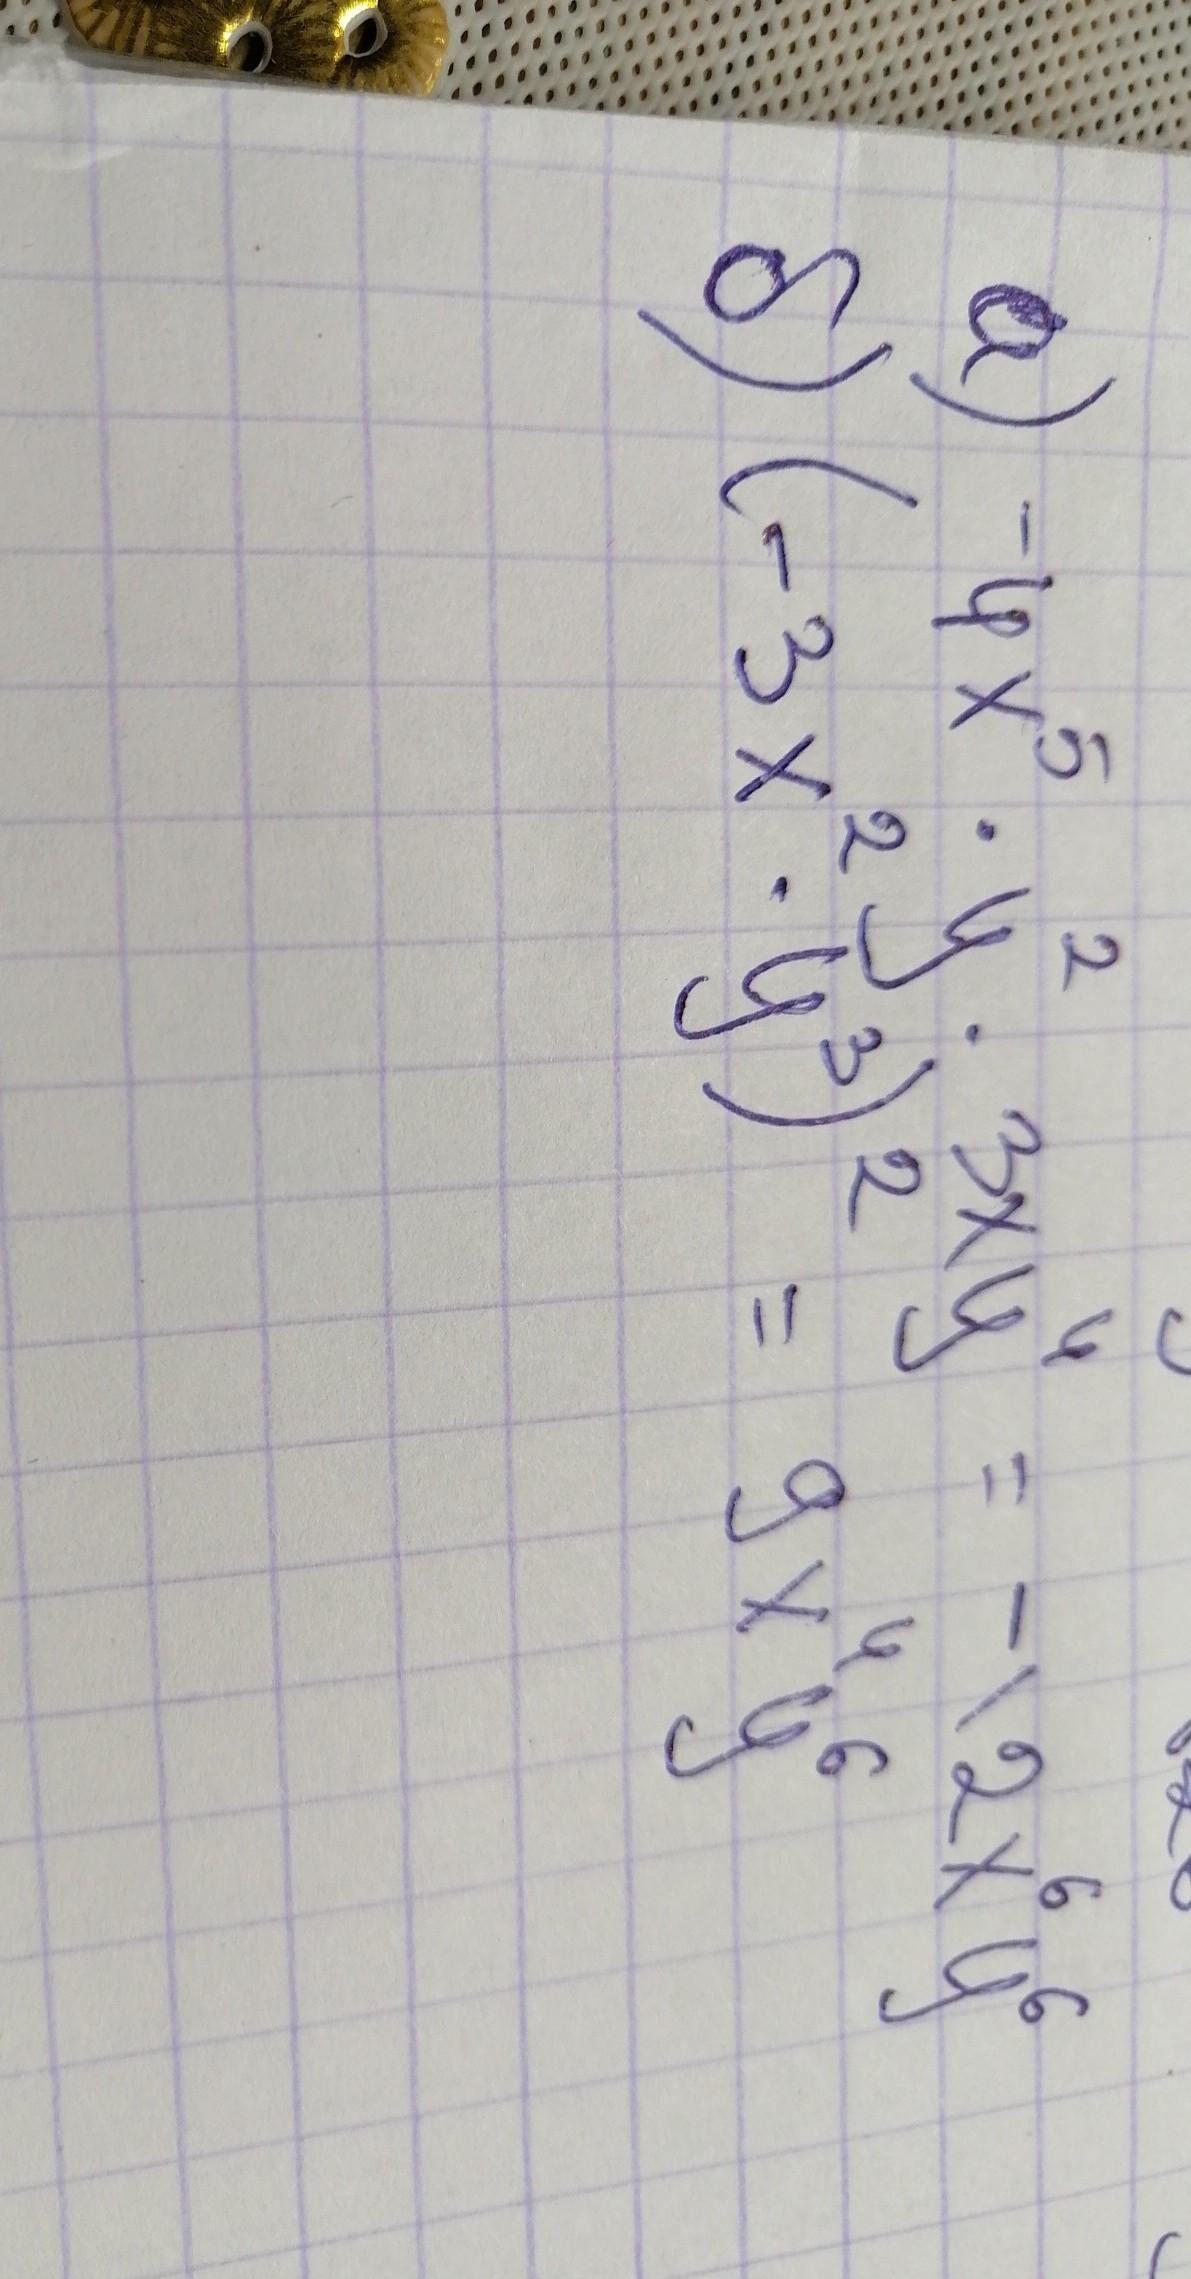 а) -4x⁵ · y² · 3xy⁴ = -12x⁶y⁶
б) (-3x² · y³)² = 9x⁴y⁶